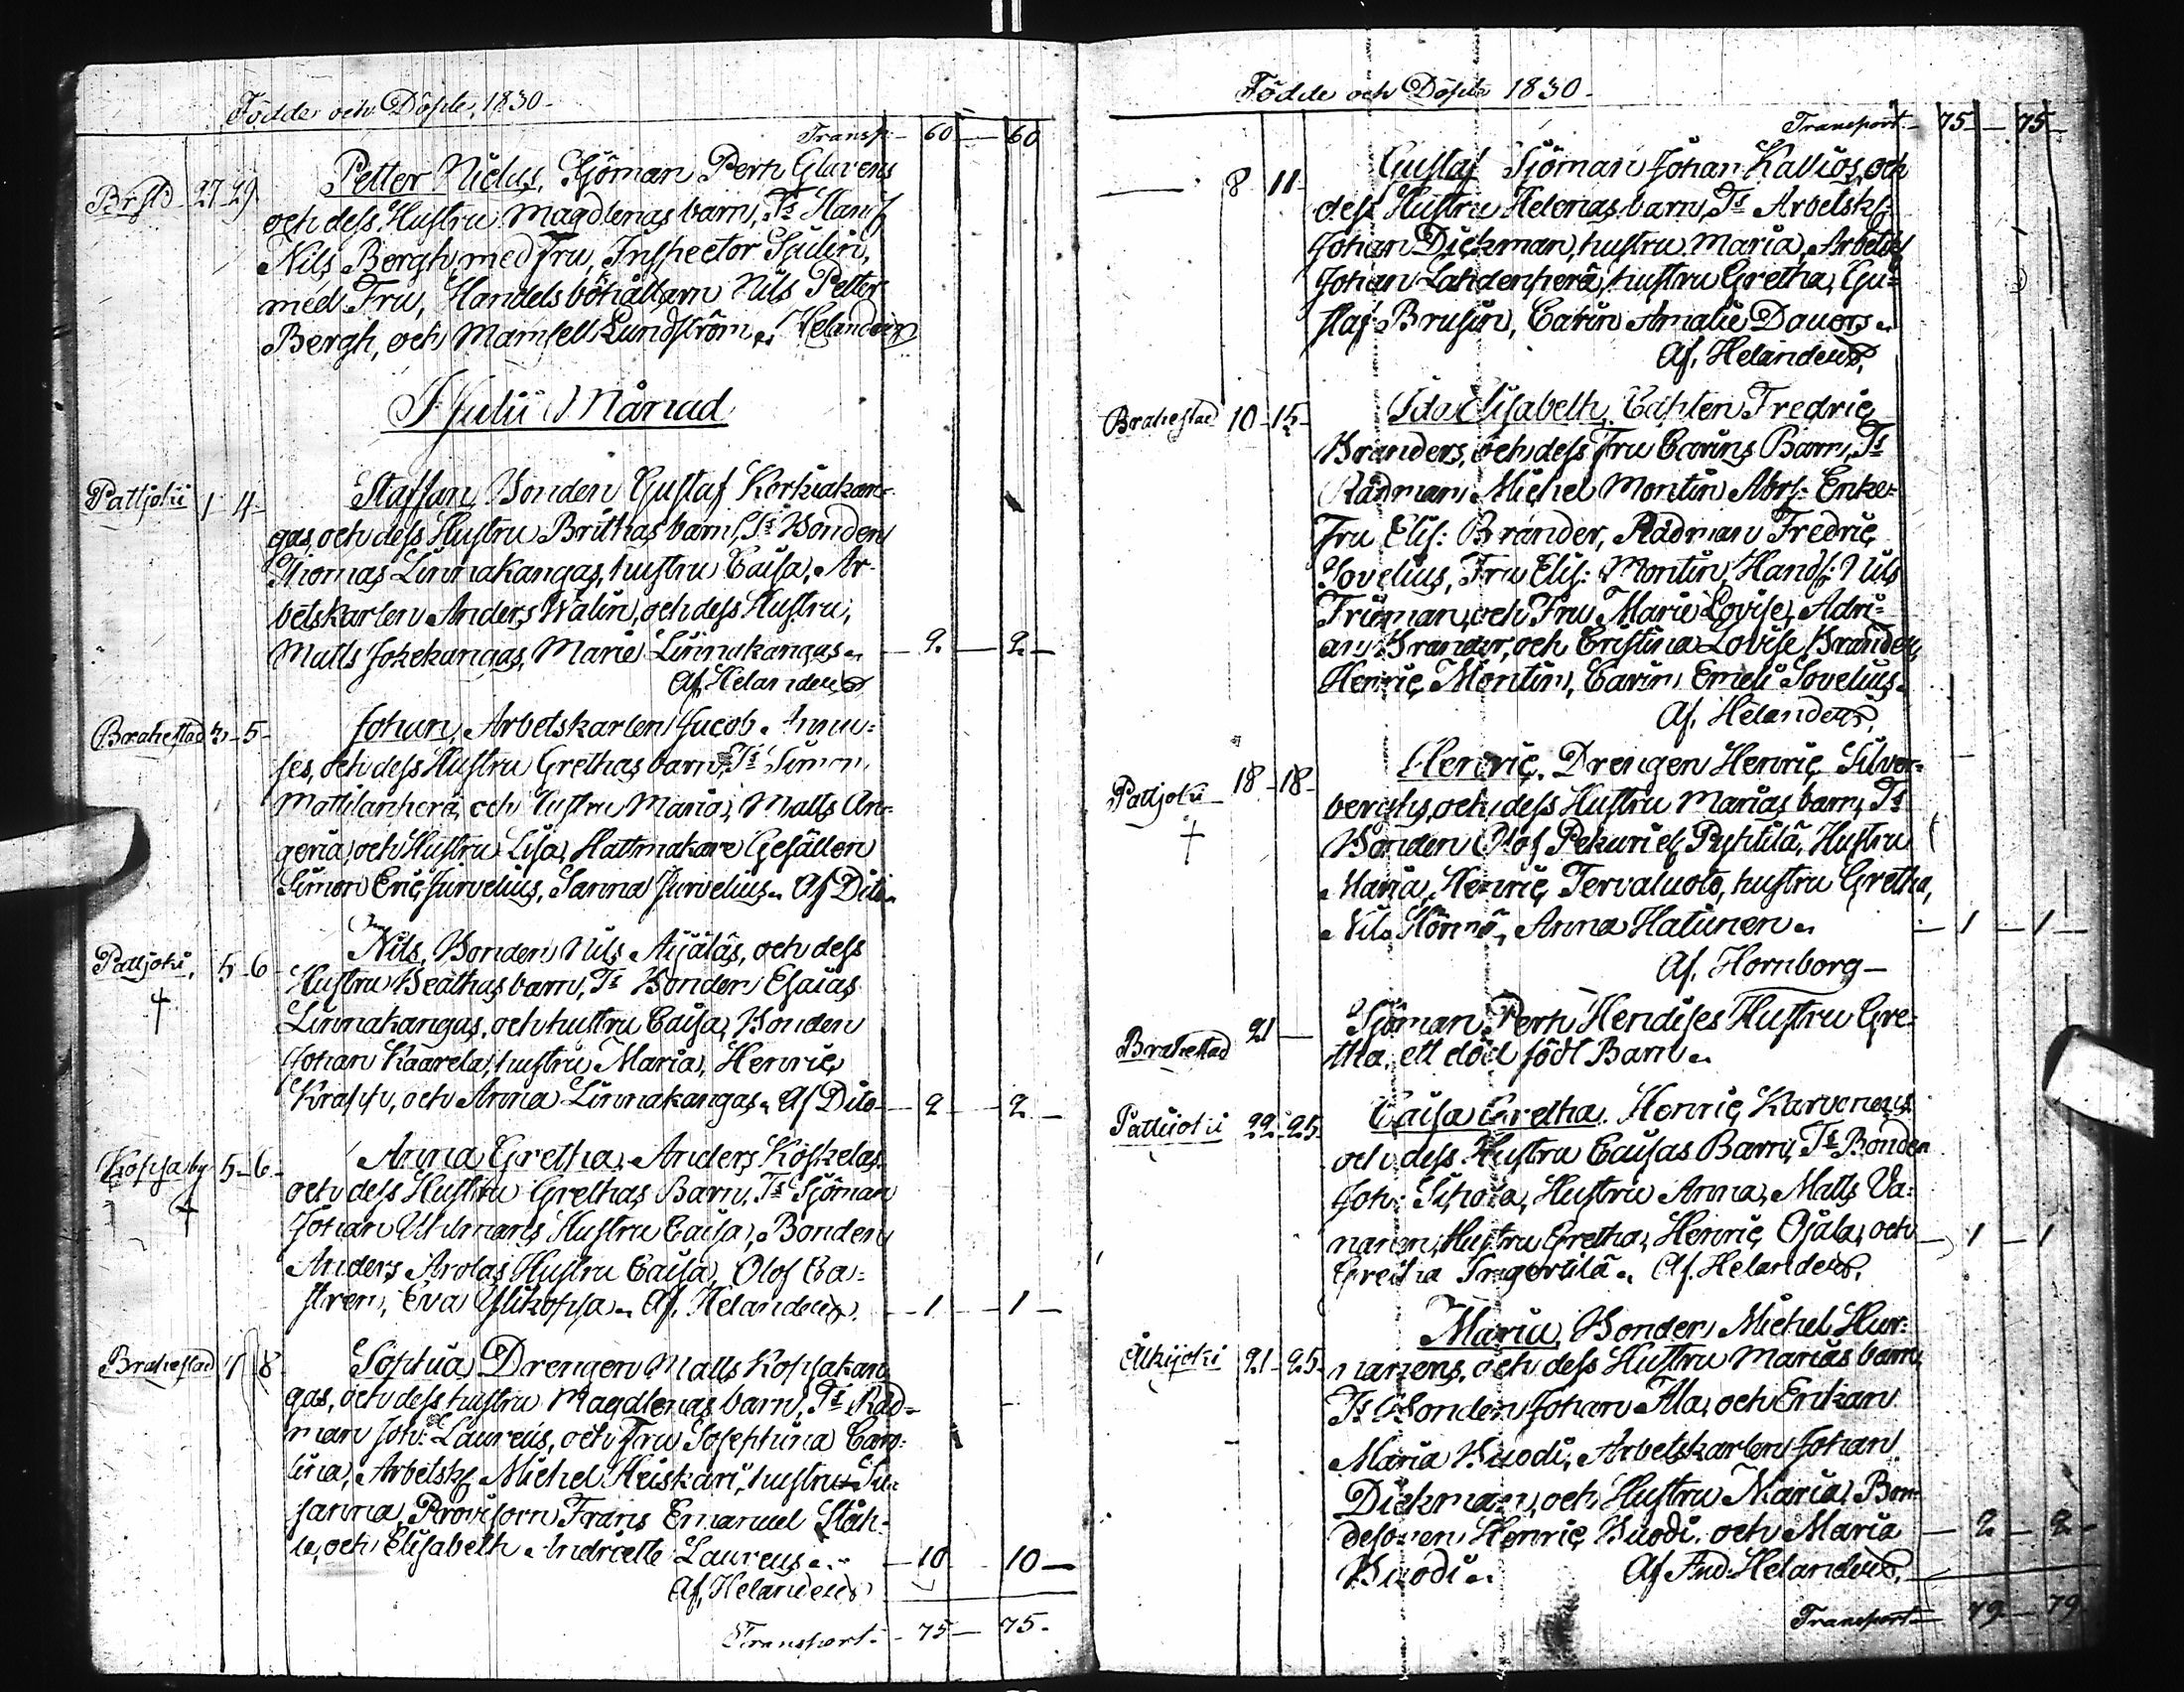 Födde och Döpte, 1830.
Transp: 60 60
Brstd 27 29 Petter Niclus, Sjöman Pertu Glavens
och dess Hustru Magdlenas barn, Ts Handl
Nils Bergh, med Fru, Inspector Sjulin,
med Fru, Handels bokhållarn Nils Petter
Bergh, och Mamsell Lundström. Helander
I Julii Månad
Pattjoki 1 4 Staffan, Bonden Gustaf Korkiakan-
gas, och dess Hustru Brithas barn, Ts Bonden
Thomas Linnakangas, hustru Caisa, Ar-
betskarlen Anders Walin, och dess Hustru,
Matts Jokekangas, Maria Linnakangas. 2 2
Af, Helander
Brahestad 3 5 Johan, Arbetskarlen Jacob
ses, och dess Hustru Grethas barn, Ts Simon
Mattilanperä, och hustru Maria, Matts An-
geria, och Hustru Lisa, Hattmakare Gesällen
Simon Eric Jurvelius, Sanna Jurvelius. Af Dito
Pattjoki 5 6 Nils, Bonden Nils Äijäläs, och dess
Hustru Beathas barn, Ts Bonden Esaias
Linnakangas, och hustru Caisa, Bonden
Johan Kaarela, hustru Maria, Henric
Krapu, och Anna Linnakangas. Af Dito 2 2
Kopsaby 5 6 Anna Gretha. Anders Koskelas
och dess Hustru Grethas Barn, Ts Sjöman
Johan Uhlmans Hustru Caisa, Bonden
Anders Arolas Hustru Caisa, Olof Ca-
stren, Eva Ylikopsa. Af, Helander 1 1
Brahestad 7 8 Sophia, Drengen Matts Kopsakan-
gas, och dess hustru Magdlenas barn, Ts Råd-
man Joh: Laureus, och Fru Josephina Caro-
lina, Arbetsk Michel Heiskari, hustru Su-
sanna, Provisorn Frans Emanuel Ståh-
le, och Elisabeth Andriette Laureus. 10 10
Af, Helander
Transport. 75 75.
Födde och Döpte 1830.
Transport. 75 75
8 11 Gustaf Sjöman Johan Kallios, och
dess Hustru Helenas barn, Ts Arbetsk
Johan Dickman, hustru Maria, Arbetsk
Johan Lahdenperä, hustru Gretha, Gu-
staf Brusin, Carin Amalie Davors.
Af, Helander
Brahestad 10 15 Ida Elisabeth, Capten Fredric
Branders, och dess Fru Carins Barn, Ts
Rådman Michel Montin Abrs: Enke-
Fru Elis: Brander, Rådman Fredric
Sovelius, Fru Elis: Montin, Handl: Nils
Frieman, och Fru Marie Lovise, Adri-
an Brander, och Cristina Lovise Brander,
Henric Montin, Carin Emeli Sovelius.
Af, Helander
Pattjoki 18 18 Henric. Drengen Henric Silver-
berghs, och dess Hustru Marias barn, Ts
Bonden Olof Pekuriels Puhtila, Hustru
Maria, Henric Tervaluoto, hustru Gretha,
Nils Hörnö, Anna Hatunen. 1 1
Af, Hornborg
Brahestad 21 Sjöman Pertu Hendises Hustru Gre-
tha, ett död födt Barn.
Pattjoki 22 25 Caisa Gretha. Henric Karvonens
och dess Hustru Caisas Barn, Ts Bonden
Joh: Sihvola, Hustru Anna, Matts Va-
nanen, Hustru Gretha, Henric Ojala, och 1 1
Gretha Ingertilä. Af. Helander
Olkijoki 21 25 Maria, Bonden Michel Hur-
nanens, och dess Hustru Marias barn,
Ts Bonden Johan Ala, och Enkan
Maria Buodi, Arbetskarlen Johan
Dickman, och Hustru Maria, Bon-
desonen Henric Buodi, och Maria 2 2
Buodi. Af And. Helander
Transport 79 79